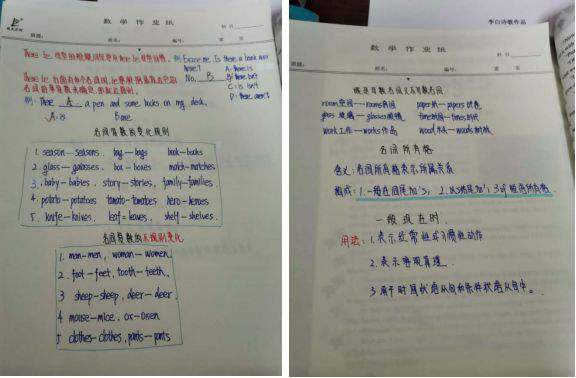 数学作业纸
科目
班级: 姓名: 编号:
There be 句型的根据词仅与there be 句型 例: Excuse me. Is there a book near here?
A. there is
No, B.
B. there isn't
C: is isn't
D: there aren't
例: There A a pen and some books on my desk.
A. is B are
名词复数的变化规则
1. season—seasons. bag—bags book—books
2. glass—glasses. box—boxes match—matches
3. baby—babies. story—stories, family—families.
4. potato—potatoes tomato—tomatoes hero—heroes
5. knife—knives. leaf—leaves. shelf—shelves.
名词复数的不规则变化
1. man—men, woman—women.
2. foot—feet, tooth—teeth.
3 sheep—sheep, deer—deer.
4 mouse—mice. ox—oxen
5 clothes—clothes, pants—pants
李白诗歌作品
数学作业纸
科目
班级: 姓名: 编号:
既是可数名词又不可数名词
room空间—rooms房间 paper纸—papers试卷
glass 玻璃—glasses眼镜 time时间—times时代
work工作—works作品 wood木头—woods树林
名词所有格
含义:名词所有格表示所属关系
构成: 1.一般在词尾加's; 2.以s结尾加'; 3.of 短语所有格.
一般现在时.
用法: 1.表示经常性或习惯性动作
2.表示客观真理.
3 用于时间状语从句和条件状语从句中。